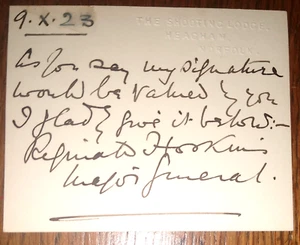 9.X.23
THE SHOOTING LODGE
MEAGHAM
As you say my signature
would be valued by you
I gladly give it below:-
Reginald Hoskins
Major General.